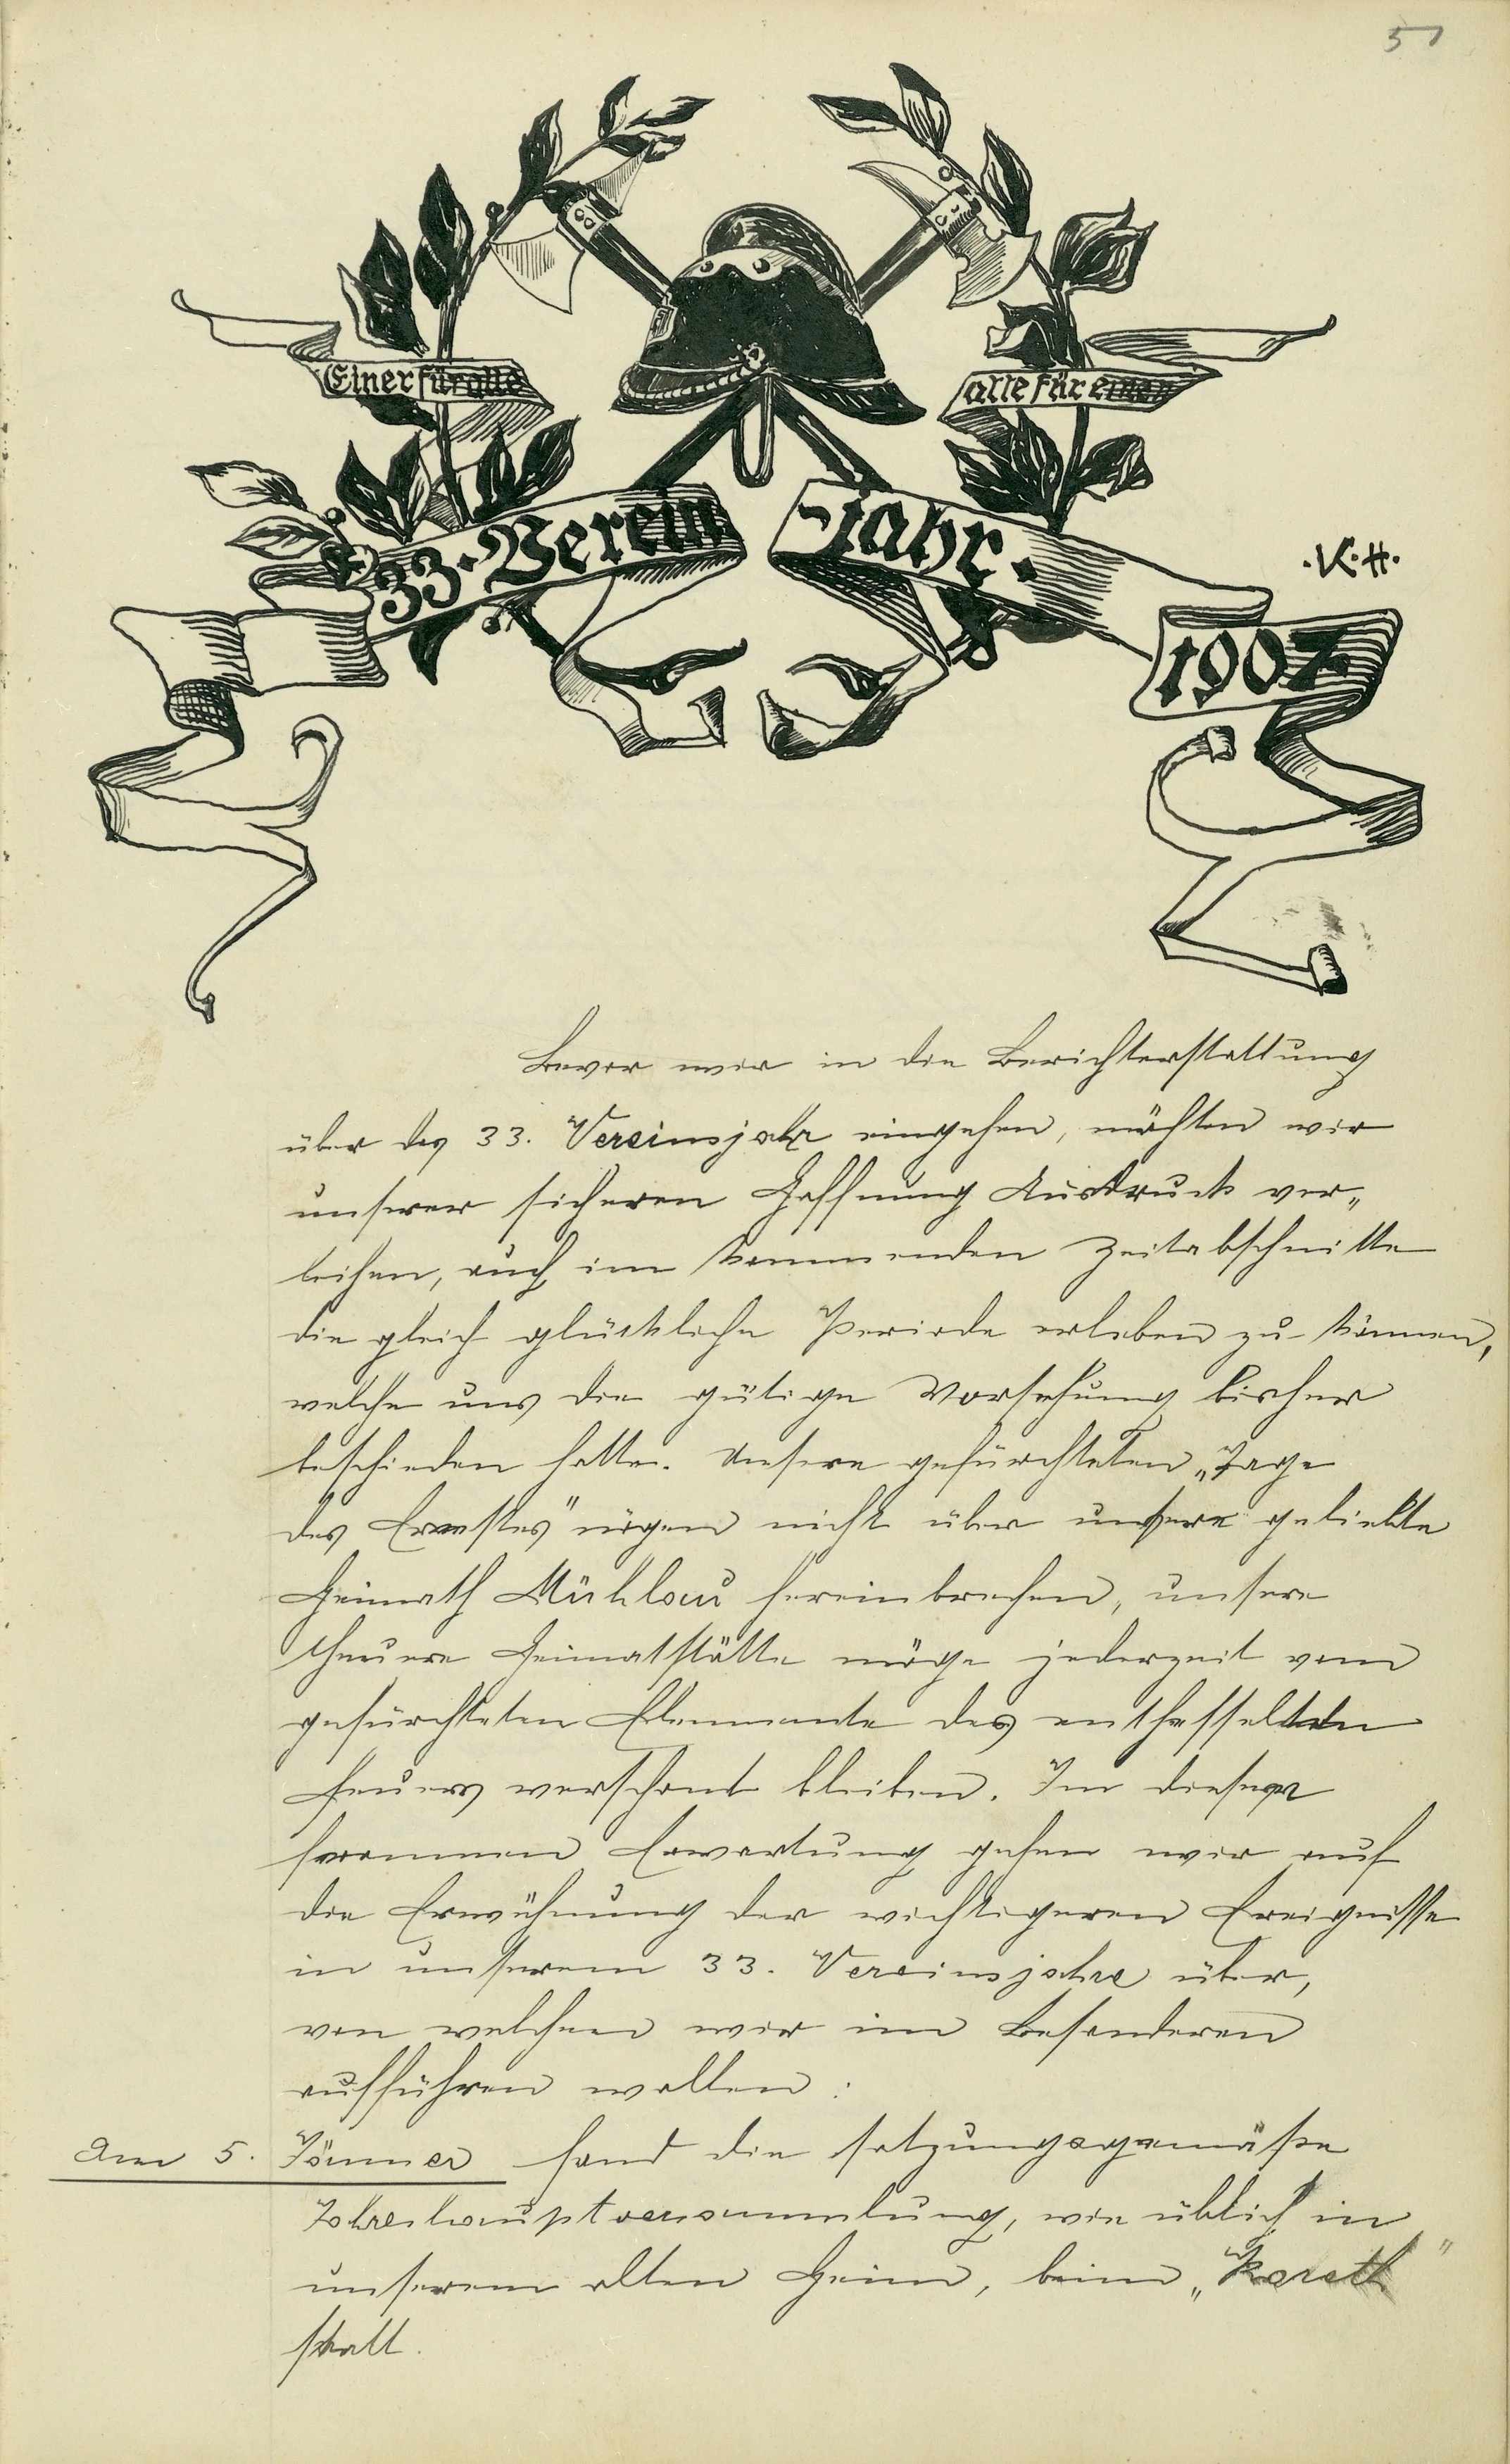 51
Einer für alle
alle für einen
33. Verein
-jahr.
.K.H.
1907
Bevor wir in die Berichterstattung
über das 33. Vereinsjahr eingehen, möchten wir
unserer sicheren Hoffnung Ausdruck ver„
leihen, auch im kommenden Zeitabschnitte
die gleich glückliche Periode erleben zu können,
welche uns die gütige Vorsehung bisher
beschieden hatte. Unsere gefürchteten „Tage
des Ernstes" mögen nicht über unsere geliebte
Heimath Mühlau hereinbrechen, unsere
theuere Heimatstätte möge jederzeit vom
gefürchteten Elemente des enthfesselten
Feuers verschont bleiben. In dieser
frommen Erwartung gehen wir auf
die Erwähnung der wichtigeren Ereignisse
in unserem 33. Vereinsjahre über,
von welchen wir im Besonderen
aufführen wollen:
Am 5. Jänner fand die satzungsgemäße
Jahreshauptversammlung, wie üblich in
unserem alten Heim, beim „Koreth"
statt.